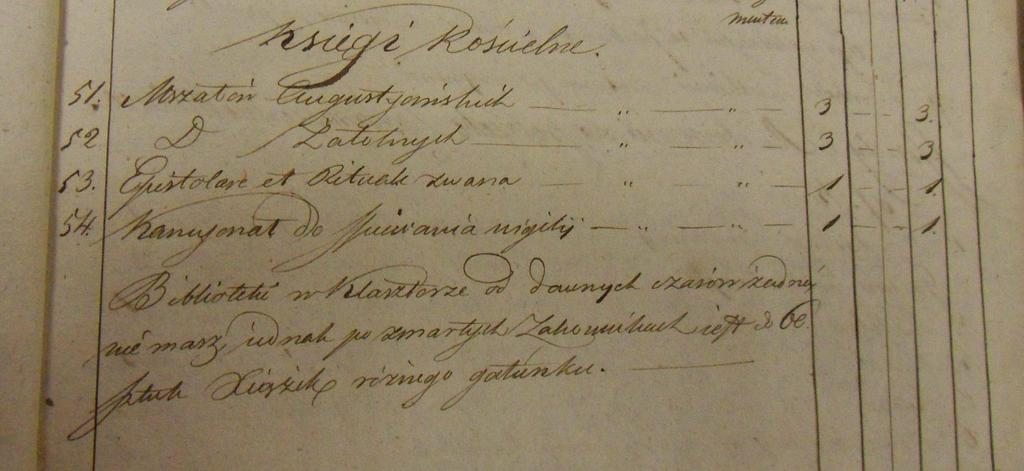 Księgi Kościelne.
51. Mszałów Augustyańskich — „ — „ — 3 — 3.
52 D Żałobnych — „ — „ — 3 — 3
53. Epistolare et Rituale zwana — „ — „ — 1 — 1.
54. Kancyonał do śpiewania wigilij — „ — „ — 1 — 1.
Biblioteki w Klasztorze od dawnych czasów żadnéj
nié masz, iednak po zmarłych Zakonnikach iest do 60.
sztuk Xiążek różnego gatunku. —